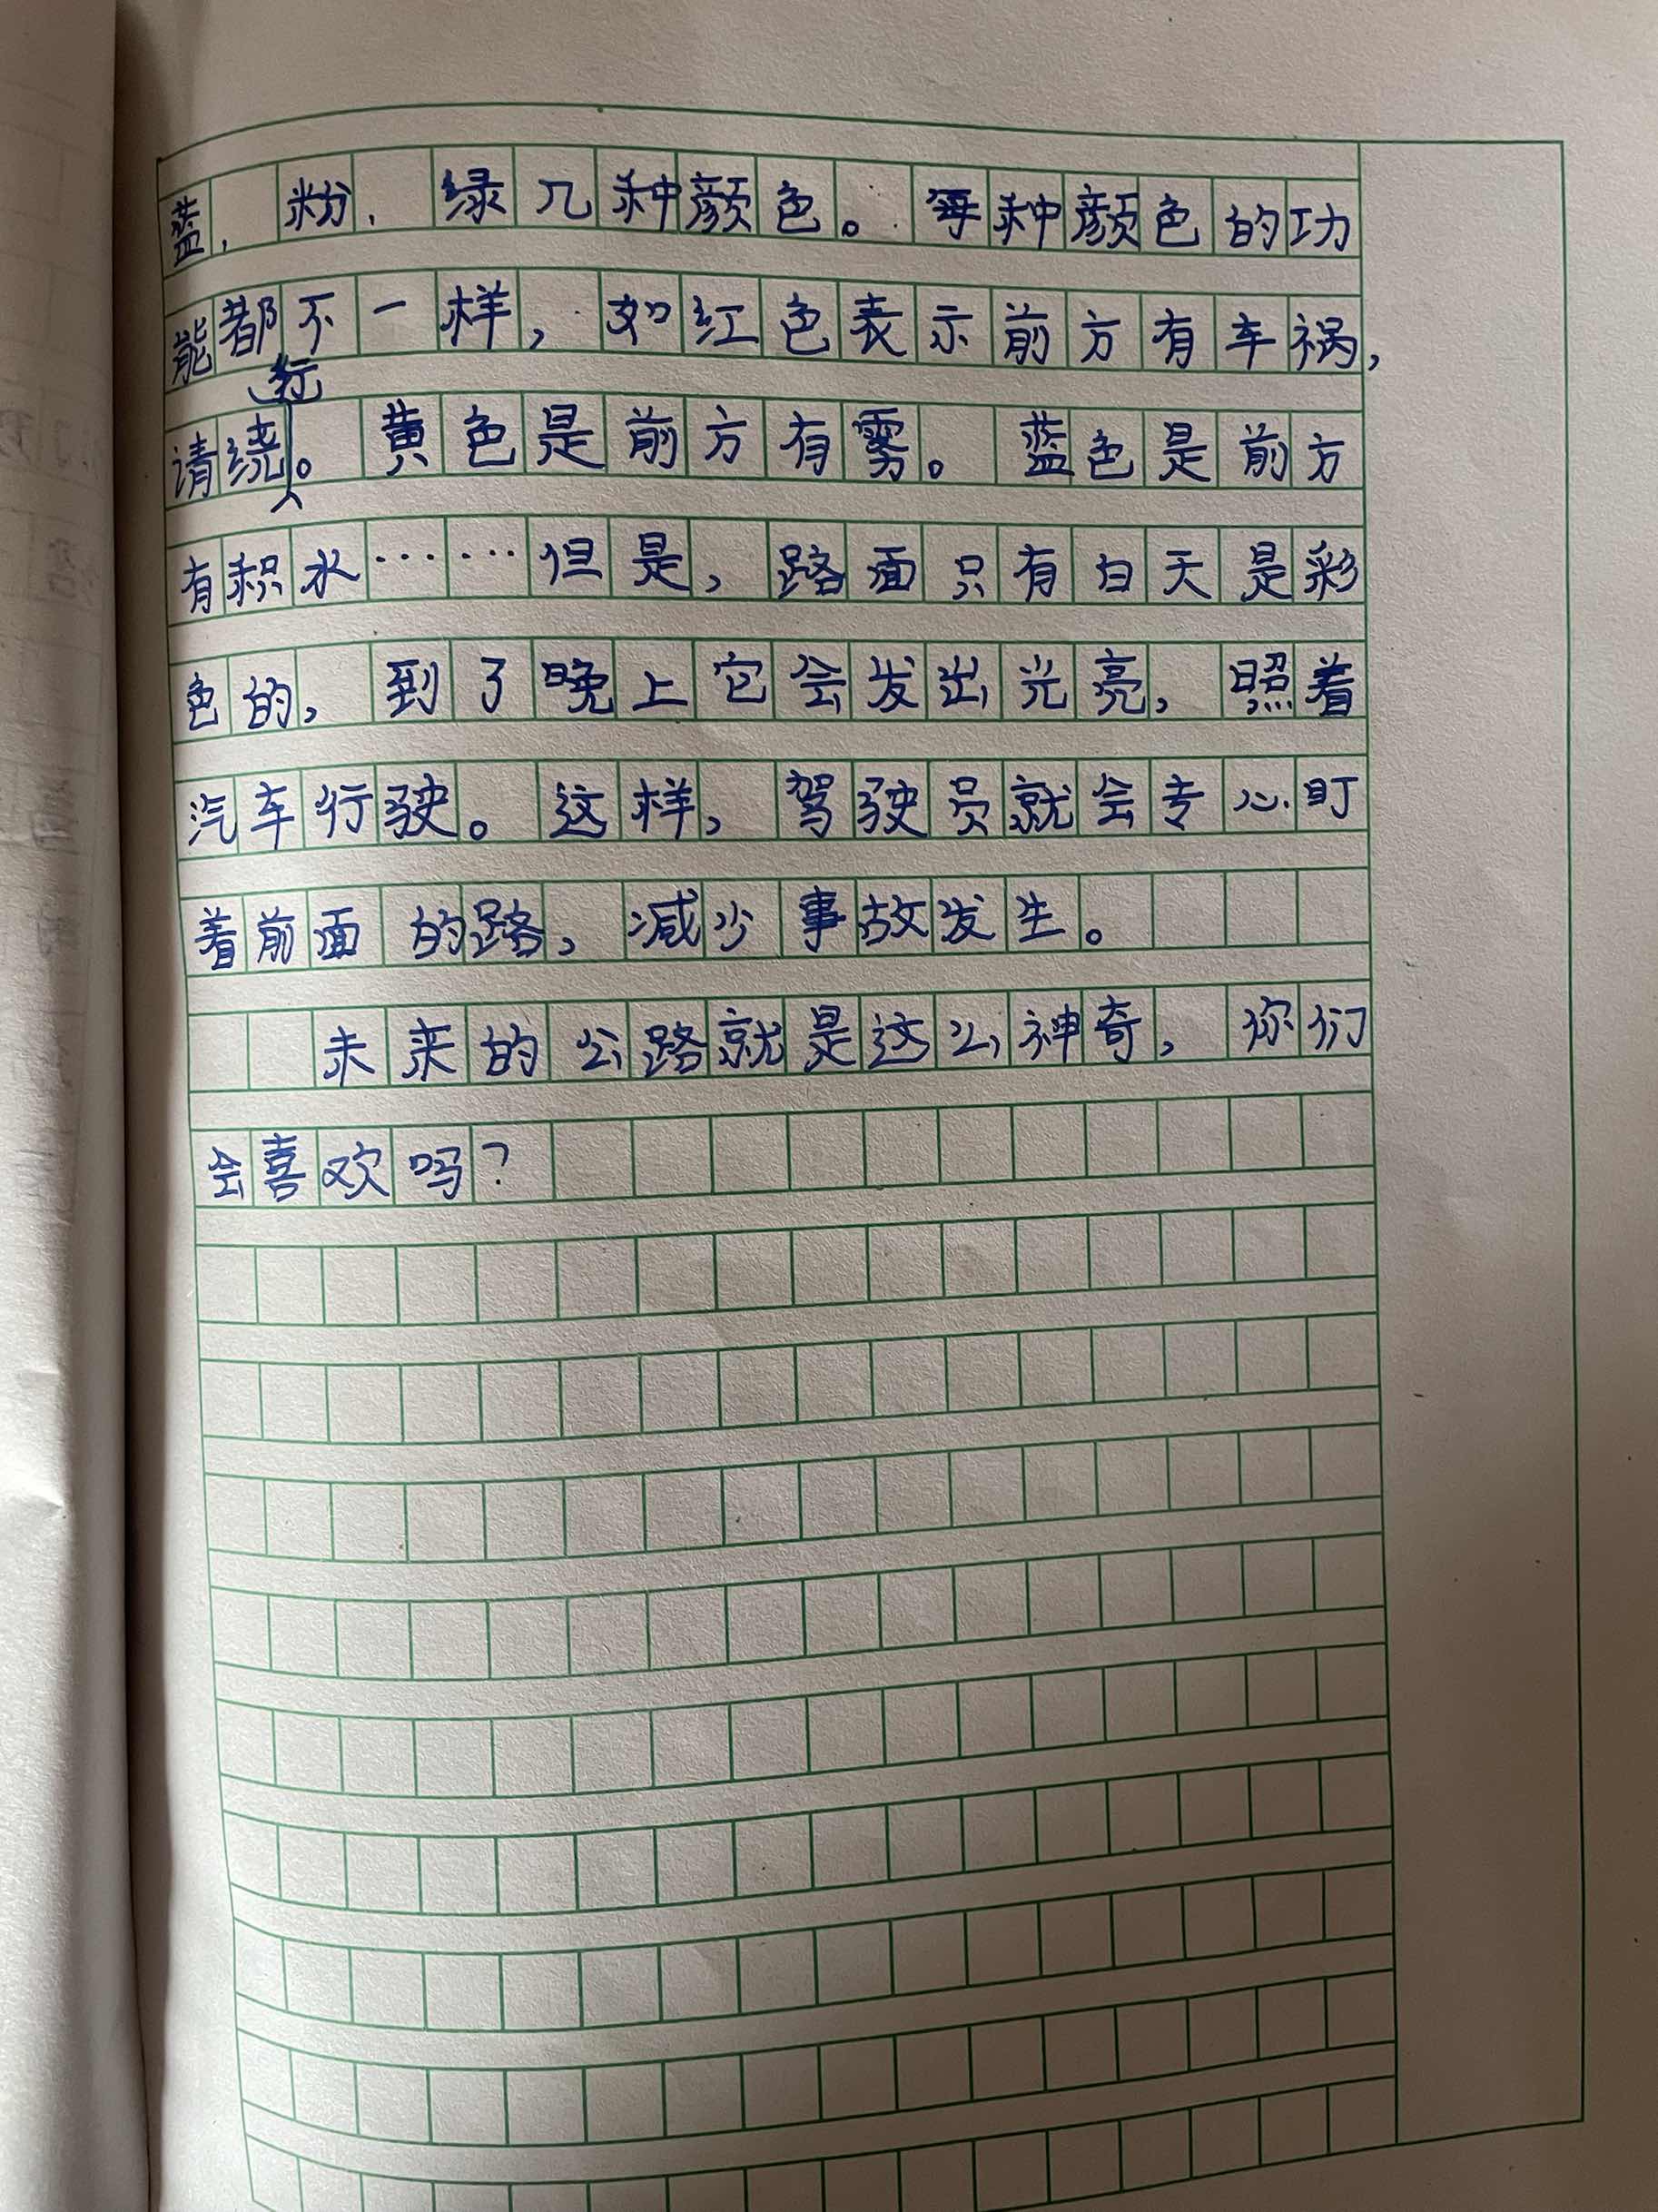 蓝、粉、绿几种颜色。每种颜色的功
能都不一样，如红色表示前方有车祸，
请绕行。黄色是前方有雾。蓝色是前方
有积水……但是，路面只有白天是彩
色的，到了晚上它会发出光亮，照着
汽车行驶。这样，驾驶员就会专心盯
着前面的路，减少事故发生。
未来的公路就是这么神奇，你们
会喜欢吗？